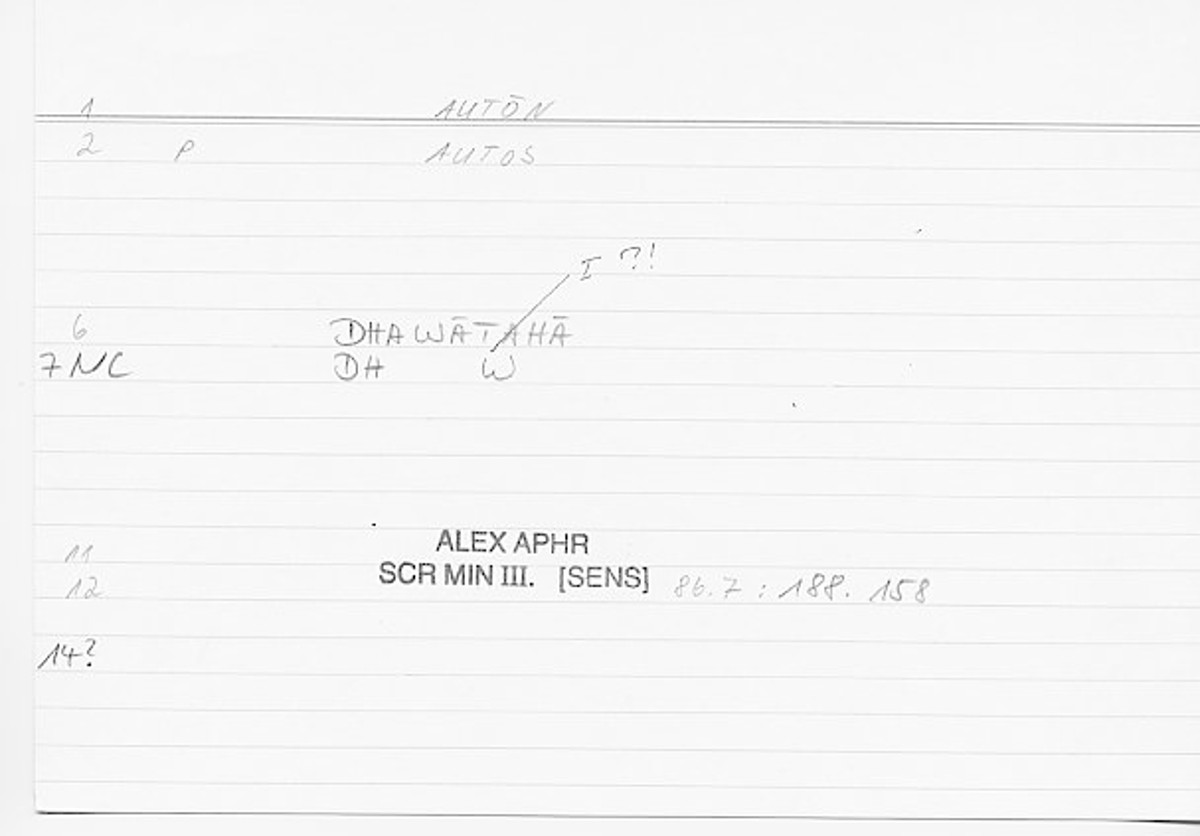 1 AUTŌN
2 P AUTOS
I ?!
6 DHAWĀTAHĀ
7NC DH W
ALEX APHR
11
SCR MIN III. [SENS] 86.7 : 188. 158
12
14?